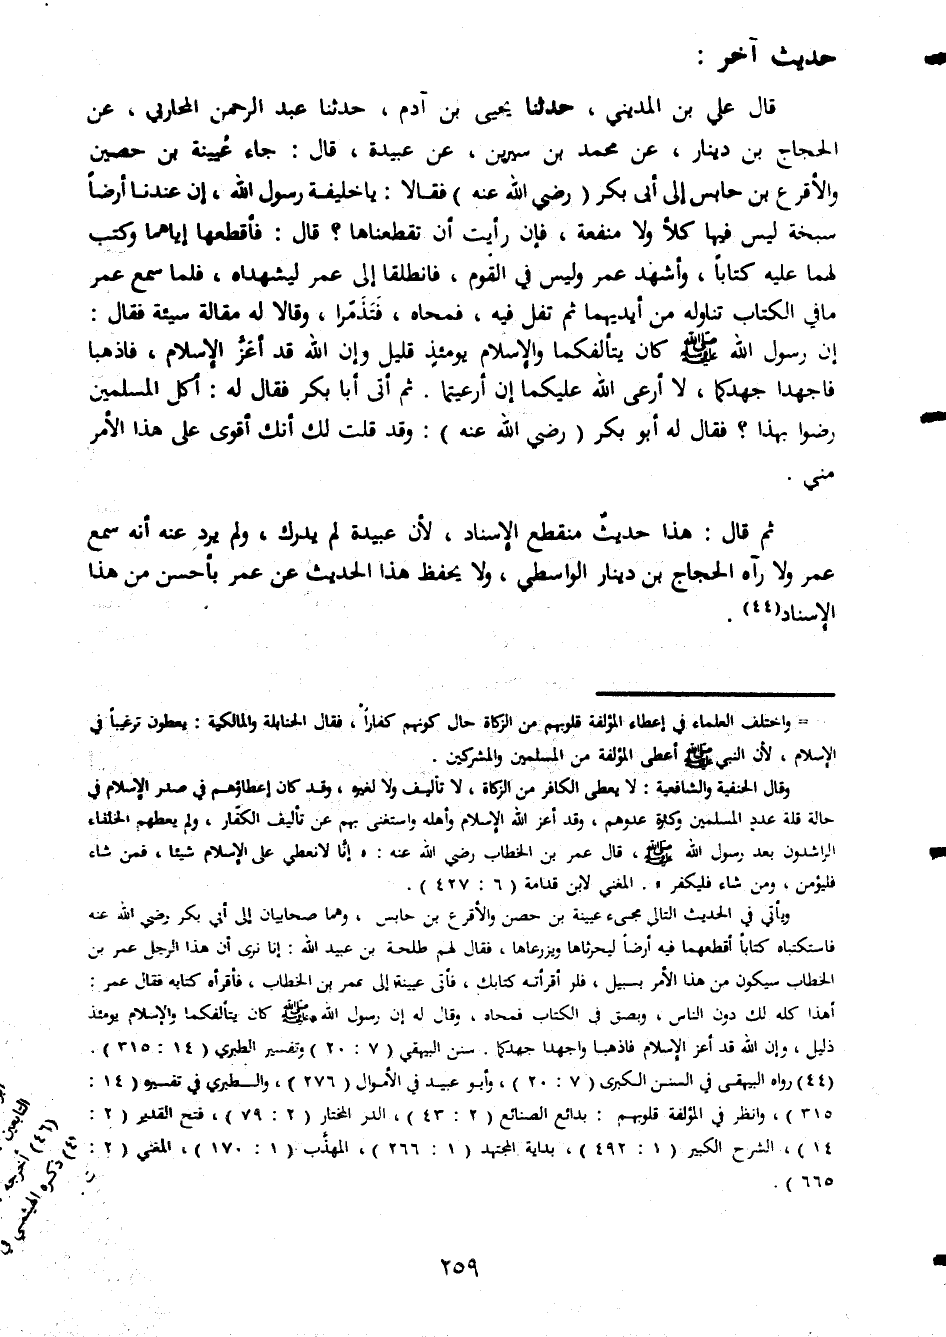 حديث آخر :
قال علي بن المديني ، حدثنا يحيى بن آدم ، حدثنا عبد الرحمن المحاربي ، عن
الحجاج بن دينار ، عن محمد بن سيرين ، عن عبيدة ، قال : جاء عُيينة بن حصين
والأقرع بن حابس إلى أبى بكر ( رضي الله عنه ) فقالا : ياخليفة رسول الله ، إن عندنا أرضاً
سبخة ليس فيها كلأ ولا منفعة ، فإن رأيت أن تقطعناها ؟ قال : فأقطعها إياهما وكتب
لهما عليه كتاباً ، وأشهد عمر وليس في القوم ، فانطلقا إلى عمر ليشهداه ، فلما سمع عمر
مافي الكتاب تناوله من أيديهما ثم تفل فيه ، فمحاه ، فَتَذَمّرا ، وقالا له مقالة سيئة فقال :
إن رسول الله ﷺ كان يتألفكما والإسلام يومئذٍ قليل وإن الله قد أعَزَّ الإسلام ، فاذهبا
فاجهدا جهدكما ، لا أرعى الله عليكما إن أرعيتما . ثم أتى أبا بكر فقال له : أكل المسلمين
رضوا بهذا ؟ فقال له أبو بكر ( رضي الله عنه ) : وقد قلت لك أنك أقوى على هذا الأمر
مني .
ثم قال : هذا حديثٌ منقطع الإسناد ، لأن عبيدة لم يدرك ، ولم يرد عنه أنه سمع
عمر ولا رآه الحجاج بن دينار الواسطي ، ولا يحفظ هذا الحديث عن عمر بأحسن من هذا
الإسناد(٤٤) .
= واختلف العلماء في إعطاء المؤلفة قلوبهم من الزكاة حال كونهم كفاراً ، فقال الحنابلة والمالكية : يعطون ترغيباً في
الإسلام ، لأن النبي ﷺ أعطى المؤلفة من المسلمين والمشركين .
وقال الحنفية والشافعية : لا يعطى الكافر من الزكاة ، لا تأليف ولا لغيره ، وقد كان إعطاؤهم في صدر الإسلام في
حالة قلة عدد المسلمين وكثرة عدوهم ، وقد أعز الله الإسلام وأهله واستغنى بهم عن تأليف الكفّار ، ولم يعطهم الخلفاء
الراشدون بعد رسول الله ﷺ ، قال عمر بن الخطاب رضي الله عنه : « إنَّا لانعطي على الإسلام شيئا ، فمن شاء
فليؤمن ، ومن شاء فليكفر » . المغني لابن قدامة ( ٦ : ٤٢٧ ) .
ويأتي في الحديث التالى مجىء عيينة بن حصن والأقرع بن حابس ، وهما صحابيان إلى أبي بكر رضي الله عنه
فاستكتباه كتاباً أقطعهما فيه أرضاً ليحرثاها ويزرعاها ، فقال لهم طلحة بن عبيد الله : إنا نرى أن هذا الرجل عمر بن
الخطاب سيكون من هذا الأمر بسبيل ، فلو أقرأته كتابك ، فأتى عيينة إلى عمر بن الخطاب ، فأقرأه كتابه فقال عمر :
أهذا كله لك دون الناس ، وبصق فى الكتاب فمحاه ، وقال له إن رسول الله ﷺ كان يتألفكما والإسلام يومئذ
ذليل ، وإن الله قد أعز الإسلام فاذهبا واجهدا جهدكما . سنن البيهقي ( ٧ : ٢٠ ) وتفسير الطبري ( ١٤ : ٣١٥ ) .
(٤٤) رواه البيهقى في السنن الكبرى ( ٧ : ٢٠ ) ، وأبو عبيد في الأموال ( ٢٧٦ ) ، والطبري في تفسيره ( ١٤ :
٣١٥ ) ، وانظر في المؤلفة قلوبهم : بدائع الصنائع ( ٢ : ٤٣ ) ، الدر المختار ( ٢ : ٧٩ ) ، فتح القدير ( ٢ :
١٤ ) ، الشرح الكبير ( ١ : ٤٩٢ ) ، بداية المجتهد ( ١ : ٢٦٦ ) ، المهذَّب ( ١ : ١٧٠ ) ، المغني ( ٢ :
٦٦٥ ) .
التابعين
(٤٦) أخرجه
ذكره الهيثمي في
٢٥٩